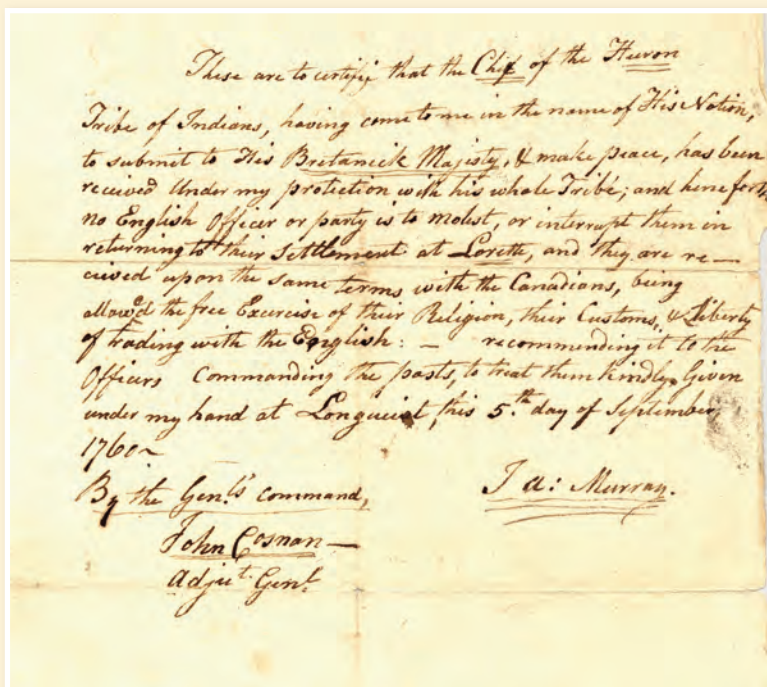 These are to certify that the Chif of the Huron
Tribe of Indians, having come to me in the name of His Nation,
to submit to His Britanick Majesty, & make peace, has been
received Under my protection with his whole Tribe; and henceforth
no English Officer or party is to molest, or interrupt them in
returning to their Settlement at Lorette, and they are re—
ceived upon the same terms with the Canadians, being
allowed the free Exercise of their Religion, their Customs, & Liberty
of trading with the English: — recommending it to the
Officers Commanding the posts, to treat them kindly, Given
under my hand at Longueiel, this 5.th day of September,
1760~
By the Genl's Command,
Ja: Murray.
John Cosnan —
Adjut. Genl.